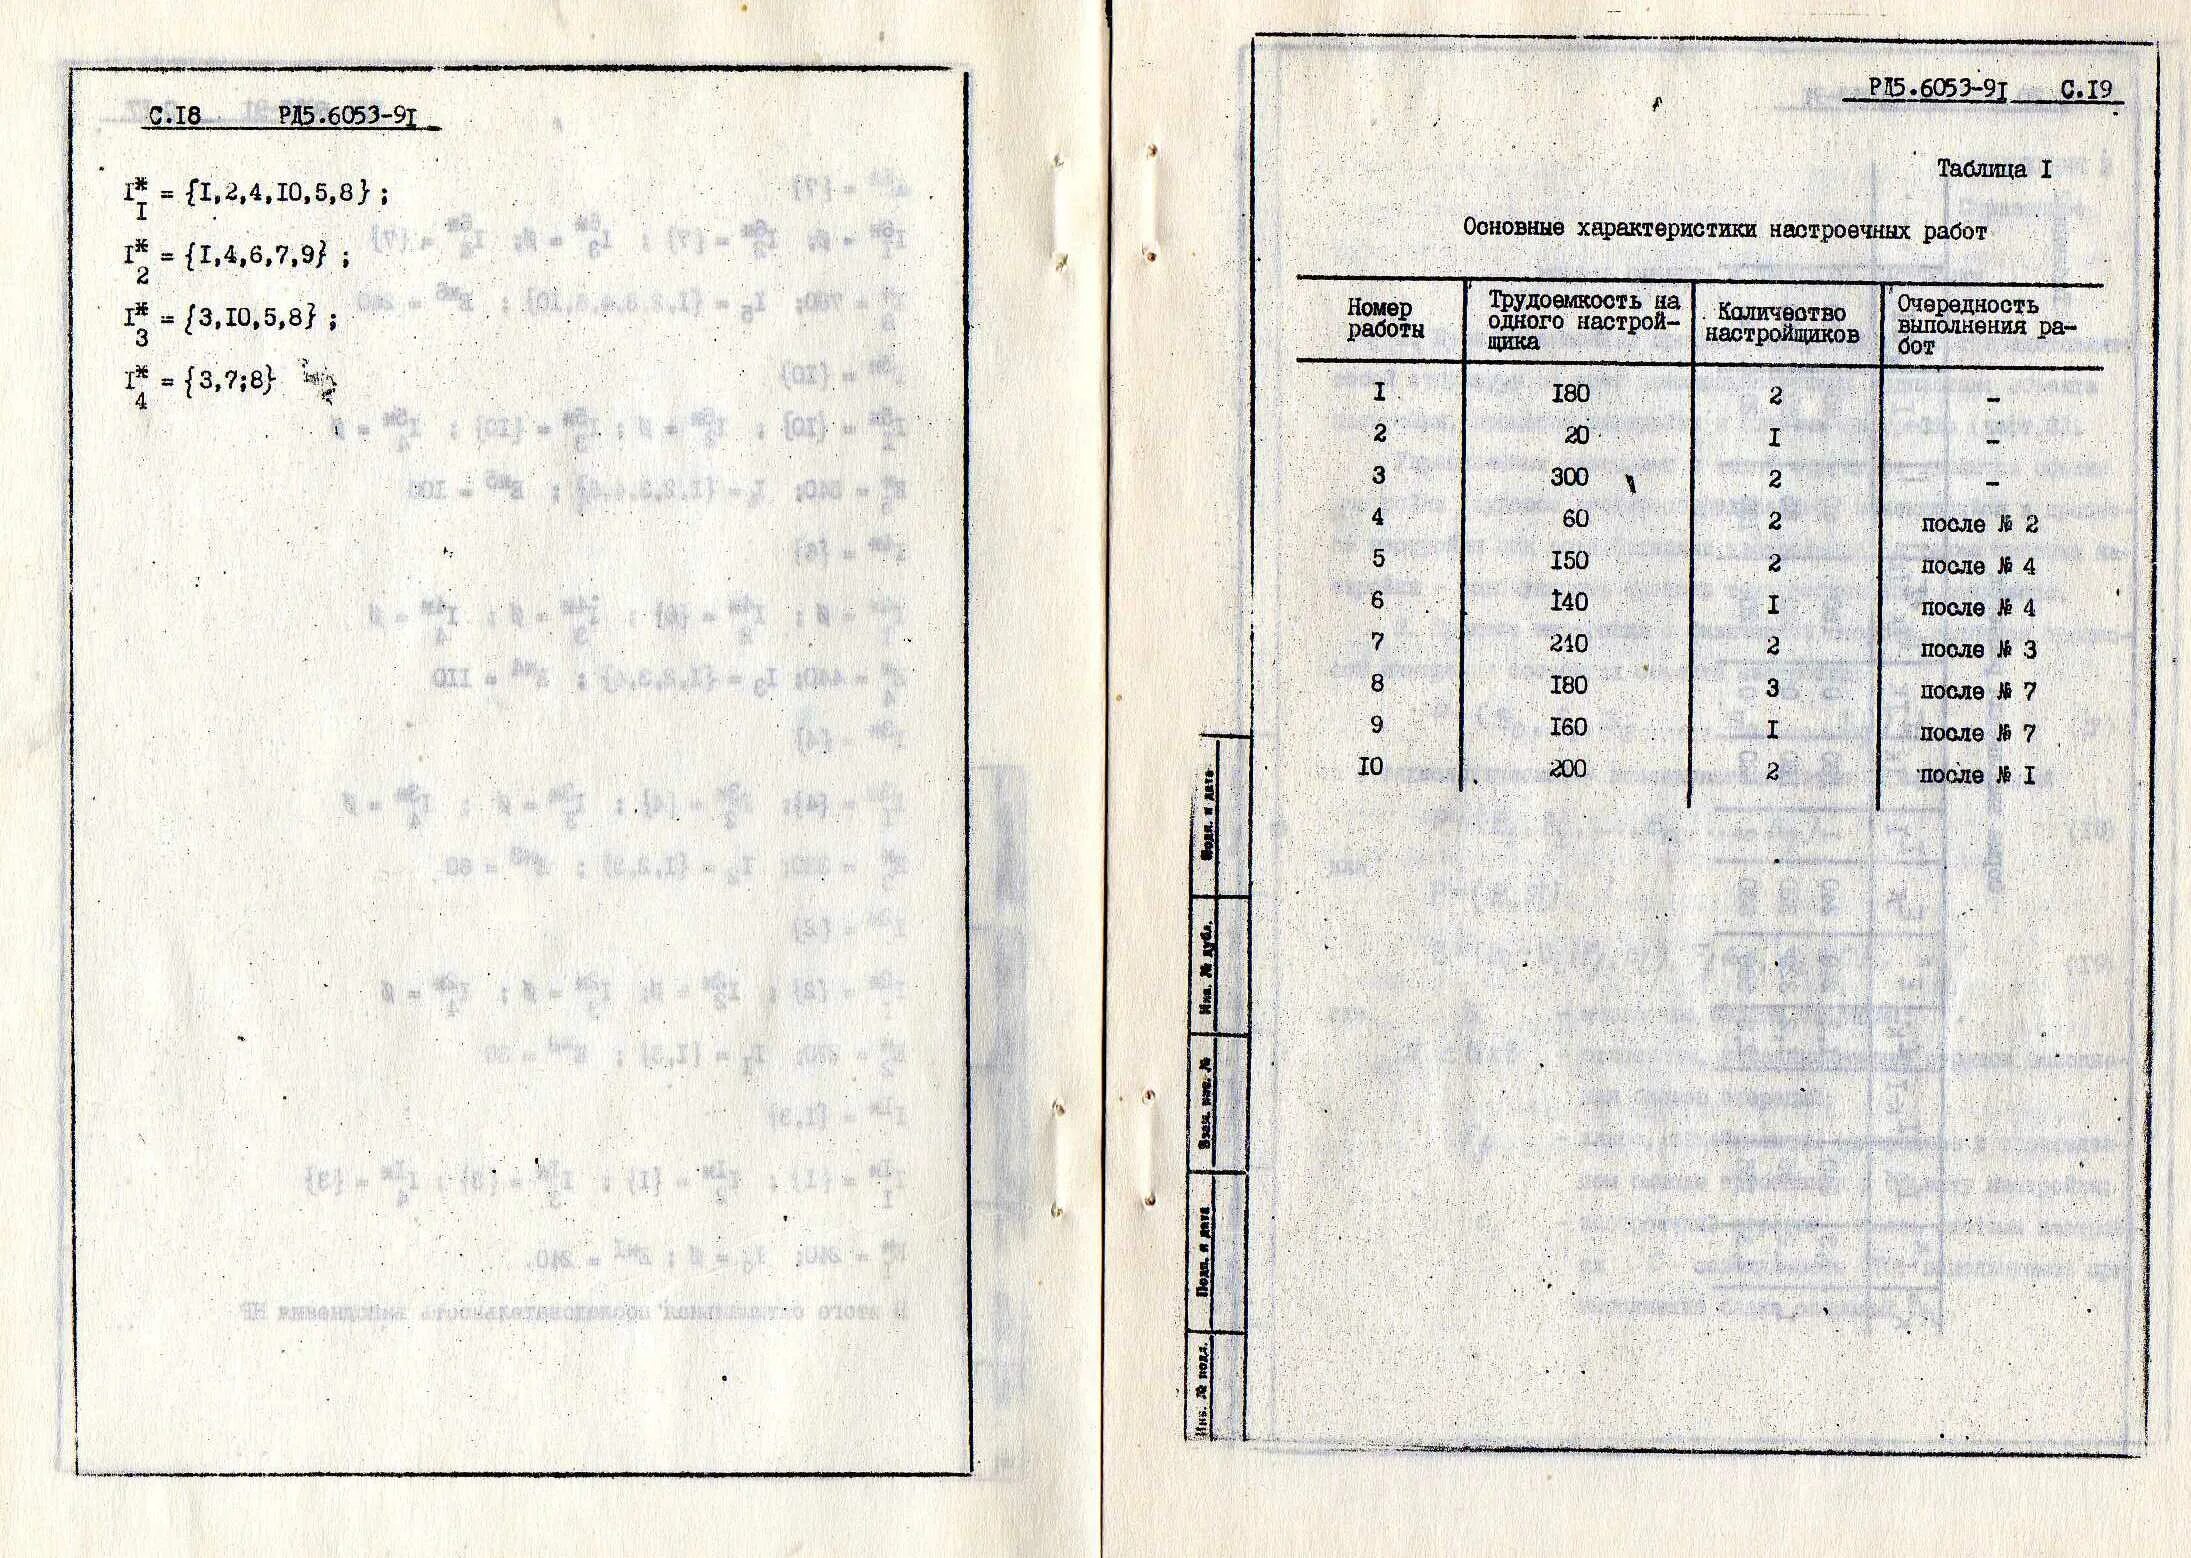 С.I8 РД5.6053-9I
I*1 = {I,2,4,IO,5,8} ;
I*2 = {I,4,6,7,9} ;
I*3 = {3,IO,5,8} ;
I*4 = {3,7;8}
РД5.6053-9I С.I9
Таблица I
Основные характеристики настроечных работ
Номер работы | Трудоемкость на одного настрой-щика | Количество настройщиков | Очередность выполнения ра-бот
I | I80 | 2 | –
2 | 20 | I | –
3 | 300 | 2 | –
4 | 60 | 2 | после № 2
5 | I50 | 2 | после № 4
6 | I40 | I | после № 4
7 | 240 | 2 | после № 3
8 | I80 | 3 | после № 7
9 | I60 | I | после № 7
IO | 200 | 2 | после № I
Подп. и дата
Инв. № дубл.
Взам. инв. №
Подп. и дата
Инв. № подл.